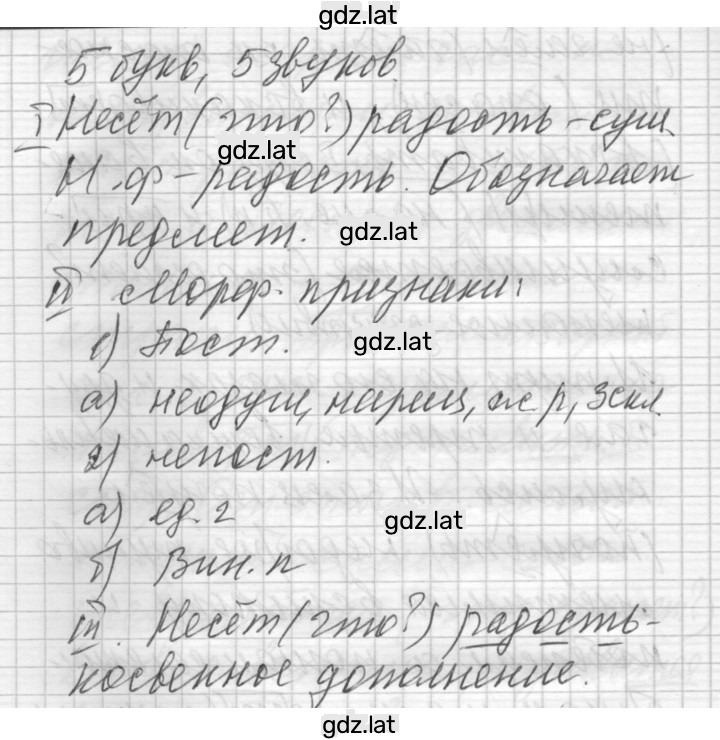 gdz.lat
5 букв, 5 звуков.
I Несёт (что?) радость - сущ.
gdz.lat
Н.ф - радость. Обозначает
предмет. gdz.lat
II Морф. признаки:
1) Пост. gdz.lat
а) неодуш, нариц, ж р, 3 скл
2) непост.
а) ед. ч gdz.lat
б) Вин. п
III. Несёт (что?) радость -
косвенное дополнение.
gdz.lat